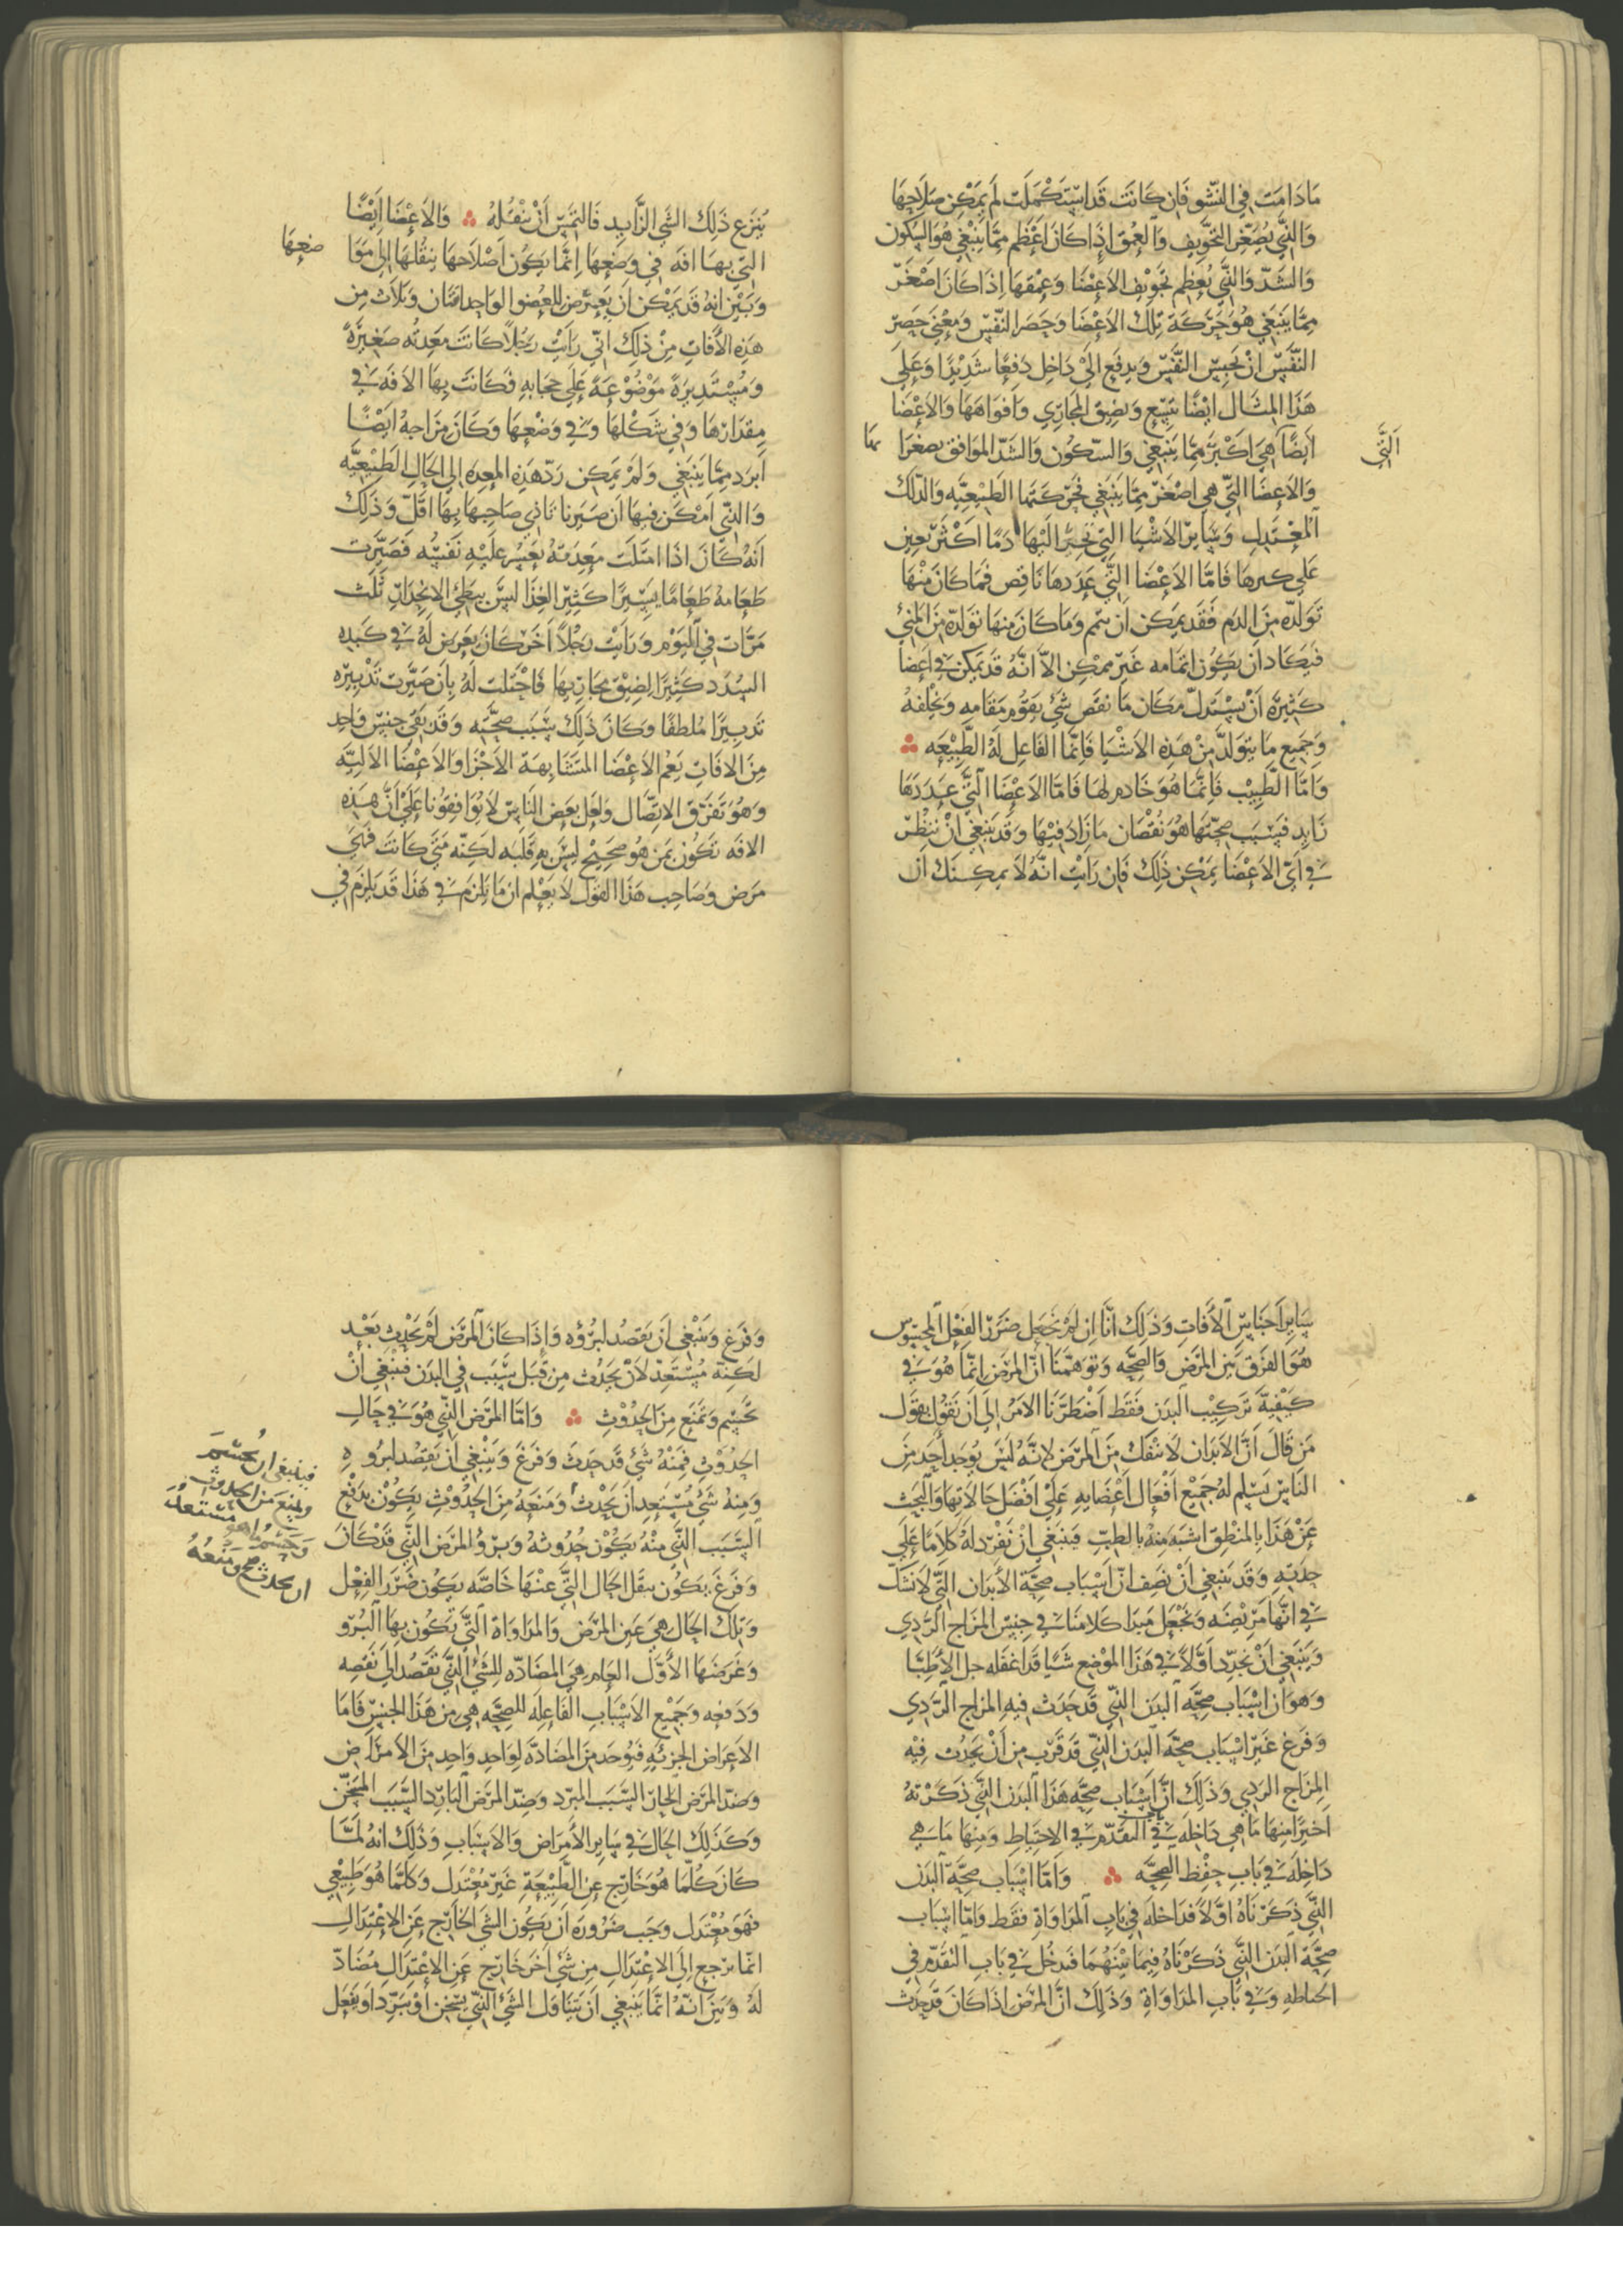 مَادَامَت فِي النُّشُو فَاِن كَانَت قَد اسْتَكْمَلَت لَم يُمْكِن صَلَاحِهَا
وَالَّذِي يُصَغِّر التَجْوِيف وَالعُمْق اِذَا كَانَ اَعْظَم مِمَّا يَنْبَغِي هُوَ السُكُون
وَالشَدّ وَالَّذِي يُعَظِم تَجْوِيف الاَعْضَا وَعُمْقهَا اِذَا كَانَ اَصْغَر
مِمَّا يَنْبَغِي هُوَ حَرَكَة تِلْكَ الاَعْضَا وَحَصَر النَّفَس وَمَعْنَى حَصَر
النَّفَس اَنْ يُحْبَس النَّفَس وَيدفَع اِلَى دَاخِل دَفْعًا شَدِيْدًا وَعَلَى
هَذَا المِثَال اَيْضًا يَتَّسِع وَيَضِيق المَجَارِي وَافوَاهَهَا وَالاَعْضَا
اَلَّتِي
اَيْضًا هِيَ اَكْبَر مِمَّا يَنْبَغِي وَالسّكُون وَالشَدّ المُوَافِق يصغرَا نِهَا
وَالاَعْضَا الَّتِي هِي اَصْغَر مِمَّا يَنْبَغِي فَحَرَكَتهَا الطَبِيْعِيَّه وَالدَّلك
اَلمُعْتَدِل وَسَايِر الاَشْيَا الَّتِي تَجُرُّ اليْهَا دَمًا اَكْثَر يُعِين
عَلَى كبرهَا فَامَّا الاَعْضَا الَّتِي عَدَدهَا نَاقِص فَمَا كَانَ مِنْهَا
تَوَلّده مِنَ الدَم فَقَد يُمكِن اَن يتم وَمَا كَانَ مِنهَا تَوَلّده مِنَ المَنِي
فَيَكَاد اَن يَكُوْن اتمَامه غَير ممكِن اِلَّا اَنَّهُ قَد يُمكِن فِي اَعضا
كَثِيرَة اَنْ يسْتبدلّ مَكَان مَا نقَص شَي يَقُوم مَقَامه وَيخْلفهُ
وَجَمِيع مَا يتَولَّد مِنْ هَذِهِ الاَشْيَا فَاِنَّمَا الفَاعِل لَهُ الطَّبِيْعَه
وَاَمَّا الطَّبِيْب فَاِنَّمَا هُوَ خَادِم لهَا فَامَّا الاَعْضَا الَّتِي عَدَدهَا
زَايِد فَسَبَب صِحَّتهَا هُوَ نُقْصَان مَا زَادَ فِيْهَا وَقَد يَنْبَغِي اَنْ نَنْظُر
فِي اَيّ الاَعْضَا يُمْكِن ذَلِكَ فَاِن رَاَيْت اَنَّهُ لَا يمكِنك اَن
يُنزَع ذَلِكَ الشَي الزَّايِد فَالتَمِس اَنْ تنْقُلهُ وَالاَعْضَا اَيْضًا
الَّتِي بِهَا افَه فِي وَضْعِهَا اِنَّمَا يَكُوْن اصْلَاحهَا بنقْلهَا اِلَى مَوَا
ضعِهَا
وَبَيِّن انّهُ قَد يُمْكِن اَن يَعْرِض للعُضْو الوَاحِد افتَان وَثلَاث مِن
هَذِهِ الاَفَات مِنْ ذَلِكَ اَنِّي رَاَيْت رَجُلًا كَانَت مَعِدَته صَغِيْرَةً
وَمُسْتَدِيرَةً مَوْضُوْعَةً عَلَى حِجَابِهِ فَكَانَت بِهَا الافَه فِي
مِقدَارهَا وَفِي شَكْلهَا وَفي وَضْعِهَا وَكَانَ مِزَاجهُ اَيْضًا
اَبرَد مِمَّا يَنْبَغِي وَلَمْ يُمكِن رَدّ هَذِهِ المعِدَه اِلى الحَال الطَبِيْعِيَّه
وَالَّذِي اَمْكَن فِيهَا اَن صَيّرنا تَاذّي صَاحِبهَا بِهَا اقَلّ وَذَلِكَ
اَنّهُ كَانَ اِذَا امتَلَت مَعِدَتهُ يَعْسُر عَلَيْهِ نَفَسُه فَصَيّرت
طَعَامهُ طَعَامًا يَسِيْرًا كَثِيْر الغِذَا لَيْسَ ببطئِ الانْحِدَار ثَلَث
مَرَّات فِي اليَوْم وَرَاَيْت رَجُلًا اَخَر كَانَ يَعْرِض لَهُ فِي كَبِده
السُدَد كَثِيْرًا لِضِيْق مجَارِيهَا فَاحْتَلت لَهُ بِاَن صَيَّرت تَدْبِيْرَه
تَدبِيْرًا مُلَطِفًا وَكَانَ ذَلِكَ سَبَب صِحَّتِه وَقَد بَقِي جِنس وَاحِد
مِنَ الافَات يَعُم الاَعْضَا المتَشَابِهَة الاَجْزَا وَالاَعْضَا الاَلِيَّه
وَهُوَ تَفَرّق الاتِّصَال وَلَعَلّ بَعْض النَاس لَا يُوَافِقُوْنا عَلَى اَنَّ هَذِه
الافَه تَكُوْن بِمَن هُوَ صَحِيْح لَيْسَ بِهِ قَلَبَه لَكِنّه مَتَى كَانَت فَهِيَ
مَرَض وَصَاحِب هَذَا القَوْل لَا يَعْلم اَن مَا يَلزَم فِي هَذَا قَد يَلزَم في
سَايِر اَجْنَاسِ الاَفَات وَذَلِكَ انَّا اِن لَمْ نَجْعَل ضَرَر الفِعْل اَلمحسُوس
هُوَ الفَرَق بَيْن المَرَض وَالصِحَّه وَتَوَهَّمْنَا انّ المرَض اِنَّمَا هُوَ فِي
كَيْفِيَّة تَرْكِيْب البَدَن فَقَط اَضْطَرَّنَا الاَمْر اِلَى اَن نَقُول بِقَول
مَن قَالَ اَنَّ الاَبدَان لَا تنْفَك مِنَ المَرَض لاَنّهُ لَيْسَ يُوجَد اَحَد مِنَ
النَاس يَسْلم لهُ جَمِيْع اَفْعَال اَعْضَايهِ عَلَى اَفْضَل حَالَاتهَا وَالبَحْث
عَنْ هَذَا بِالمنْطِق اَشْبَه مِنْهُ بِالطبّ فَيَنبَغِي اَنْ نفْرد لَهُ كَلَامًا عَلَى
حِدَتِهِ وَقَد يَنبَغِي اَنْ نَصِف انّ اَسْبَاب صِحَّة الاَبدَان الَّتِي لَا نَشكّ
فِي انَّهَا مَرِيْضَه وَنَجْعَل مَبدَا كَلَامنَا فِي جِنْس المزَاج الرَّدِي
وَيَنبَغِي اَنْ نحَدِّد اَوَّلًا فِي هَذَا المَوْضِع شَيًا قَد اغفله جل الاَطِبَّا
وَهوَ اَن اسْبَاب صِحَّة البَدَن الَّذِي قَد حَدَث فِيهِ المزَاج الرَّدِي
وَفَرَغ غَيْر اسْبَاب صِحَّة البَدَن الَّذِي قَد قَرُب مِن اَنْ يَحْدُث فِيْهِ
المِزَاج الرَدِي وَذَلِكَ انَّ اَسْبَاب صِحَّه هَذَا البَدَن الَّذِي ذَكَرْتهُ
اَخِيْرًا مِنْهَا مَا هِي دَاخِلَه فِي باب التقَدُّم فِي الاحتِيَاط وَمِنهَا مَا هِي
دَاخِلَه فِي بَابِ حِفْظ الصِّحَّه وَاَمَّا اَسْبَاب صِحَّة البَدَن
الَّذِي ذَكَرنَاهُ اوَّلًا فدَاخلَه فِي بَاب المدَاوَاة فَقَط وَامَّا اسبَاب
صِحَّة البَدَن الَّذِي ذَكَرْنَاهُ فِيمَا بَيْنَهُمَا فَدخُل فِي بَاب التقَدُّم فِي
احتياطه وَفِي بَاب المدَاوَاة وَذَلِكَ اَنَّ المَرَض اِذَا كَانَ قَد حَدَث
وَفَرَغ وَيَنْبَغِي اَن يَقصِد لبُرْؤه وَاِذَا كَانَ المَرَض لَمْ يَحْدُث بَعْد
لَكِنّه مُسْتَعِد لاَنْ يَحْدُث مِن قَبَل سَبَب فِي البَدَن فَينْبَغِي اَنْ
تحْسِم وَتَمْنَع مِنَ الحدُوْثِ وَاَمَّا المَرَض الَّذِي هُوَ فِي حَالِ
الحدُوْث فَمِنْهُ شَي قَد حَدَث وَفَرغ وَيَنْبَغِي اَن يَقصِد لبرُو هِ
وَمِنهُ شَي مُسْتَعِد اَن يَحْدُث وَمَنعَهُ مِنَ الحدُوْث يَكُوْن بِدَفْعِ
فينبغي ان يُحسَمَ
ويمنع مِنَ الحدوث
وَيحسم مَا هو مستَعدّ
ان يحدث صح وَمَنعُهُ
اَلسَّبَب الَّذِي مِنْهُ يَكُوْن حُدُوثهُ وَبرُؤ المَرَض الَّذِي قَدْ كَانَ
وَفَرغ يَكُوْن بنقل الحَال الَّتِي عَنْهَا خَاصَّه يَكُوْن ضَرَر الفِعْل
وَتِلْكَ الحَال هِيَ عَين المَرَض وَالمدَاوَاة الَّتِي تَكُوْن بِهَا البُرْو
وَغَرَضهَا الاَوَّل العَام هِيَ المضَادَّه لِلشَي الَّذِي تَقْصِد اِلَى نَقْصه
وَدَفعِه وَجَمِيْع الاَسْبَاب الفَاعِلَه للصِحَّه هِي مِن هَذَا الجِنْس فَامَا
الاَعْرَاض الجزئيّه فَتوُجَد مِنَ المضَادّه لِوَاحِد وَاحِد مِنَ الاَمرَاض
وَضد المَرَض الحَار السَّبَب المبَرِّد وَضِدّ المَرَض البَارِد السَّبَب المسَخِّن
وَكَذَلِكَ الحَال فِي سَايِر الاَمرَاض وَالاَسْبَاب وَذَلِكَ انهُ لَمَّا
كَانَ كُلّمَا هُوَ خَارِج عَن الطَّبِيْعَة غَيْر مُعْتَدِل وَكلّمَا هُوَ طَبِيْعِي
فَهوَ مُعْتَدِل وَجَب ضَرُورَة اَن يَكُوْن الشَي الخَارِج عَن الاِعْتِدَال
انّمَا يَرجع اِلَى الاِعْتِدَال مِن شَي اَخَر خَارِج عَن الاِعْتِدَال مُضَادّ
لَهُ وَبَيِّن اَنّهُ انّمَا يَنبَغِي اَن يَتَنَاوَل الشَي الَّذِي يُسَخِّن اَوْ يُبَرِّد اَو يَفعَل